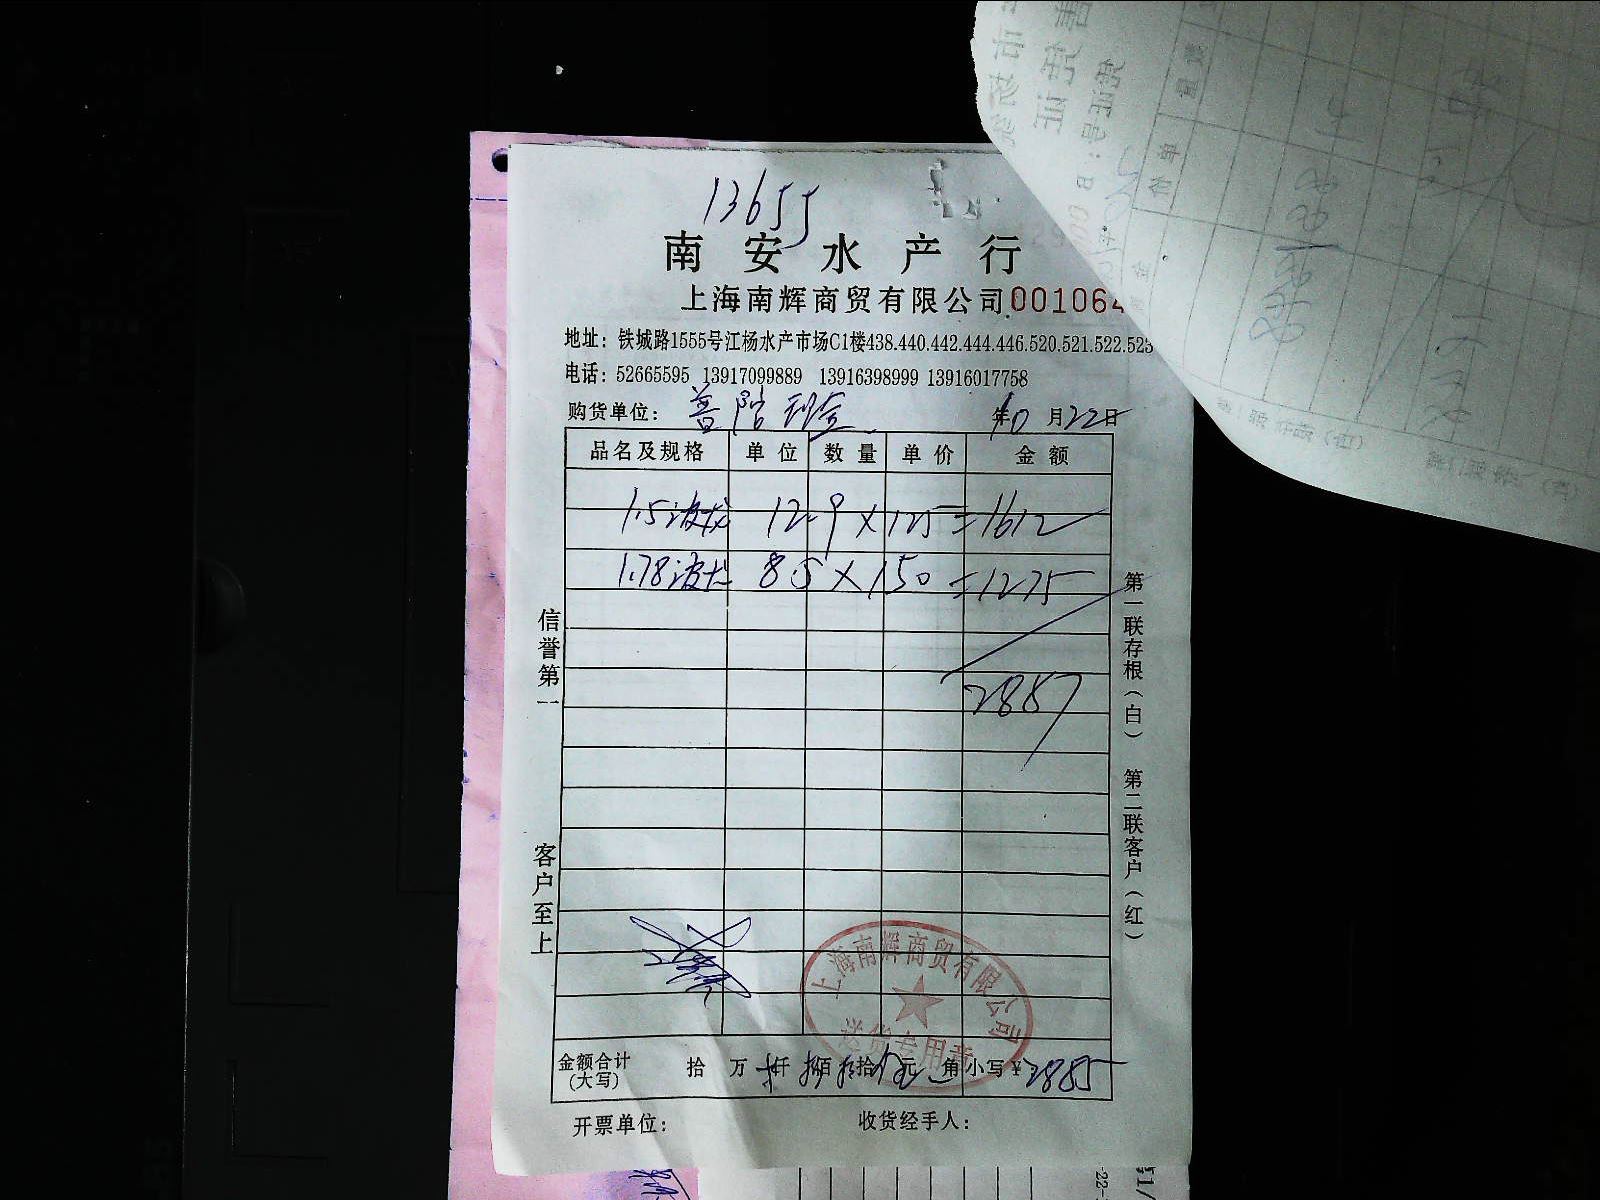 13655
南安水产行
上海南辉商贸有限公司 001064
地址：铁城路1555号江杨水产市场C1楼438.440.442.444.446.520.521.522.523
电话：52665595 13917099889 13916398999 13916017758
购货单位：普陀 年10月22日
品名及规格 单位 数量 单价 金额
1.5波龙 12.9×125=1612
1.78波龙 8.5×150=1275
2887
信誉第一
客户至上
第一联存根（白） 第二联客户（红）
上海南辉商贸有限公司
送货专用章
金额合计（大写） 拾 万 仟 佰 拾 元 角 小写￥2885
开票单位： 收货经手人：